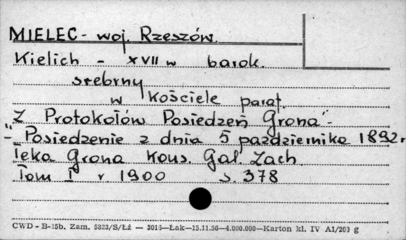 MIELEC - woj. Rzeszów.
Kielich - XVII w barok.
srebrny
w kościele paraf.
"Z Protokołów Posiedzeń Grona" -
- "Posiedzenie z dnia 5 października 1892 r
Teka Grona Kons. Gal. Zach
Tom I r 1900 s. 378
CWD - B-15b. Zam. 5323/S/Łź — 2015—Łak—15.11.50—4.000.000—Karton kl. IV A1/200 g